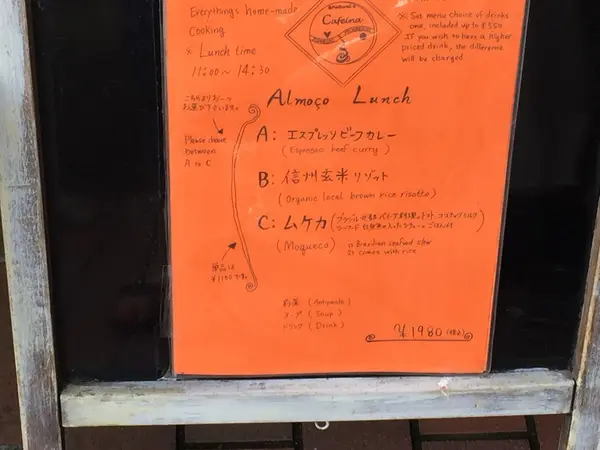 Everything's home-made
Cooking
※ Lunch time
11:00～14:30
Cafeina
※ Set menu choice of drinks
one, included up to ¥550
If you wish to have a higher
priced drink, the difference
will be charged
Almoço Lunch
こちらよりお一つ
お選び下さいませ。
Please choose
between
A to C
A: エスプレッソビーフカレー
(Espresso beef curry)
B: 信州玄米リゾット
(Organic local brown rice risotto)
C: ムケカ
(Moqueca) is Brazilian seafood stew
It comes with rice
単品は
¥1100です。
前菜 (Antipasto)
スープ (Soup)
ドリンク (Drink)
¥1980 (税込)